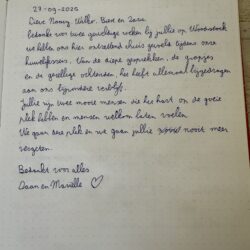 27-09-2020
Bedankt voor twee geweldige weken bij jullie op
We hebben ons hier ontzettend thuis gevoeld tijdens onze
huwelijksreis. Van de diepe gesprekken, de grapjes
en de gezellige ochtenden, het heeft allemaal bijgedragen
aan ons bijzondere verblijf.
Jullie zijn twee mooie mensen die het hart op de goeie
plek hebben en mensen welkom laten voelen.
We gaan deze plek en we gaan jullie nooit meer
vergeten.
Bedankt voor alles
Daan en Mariëlle